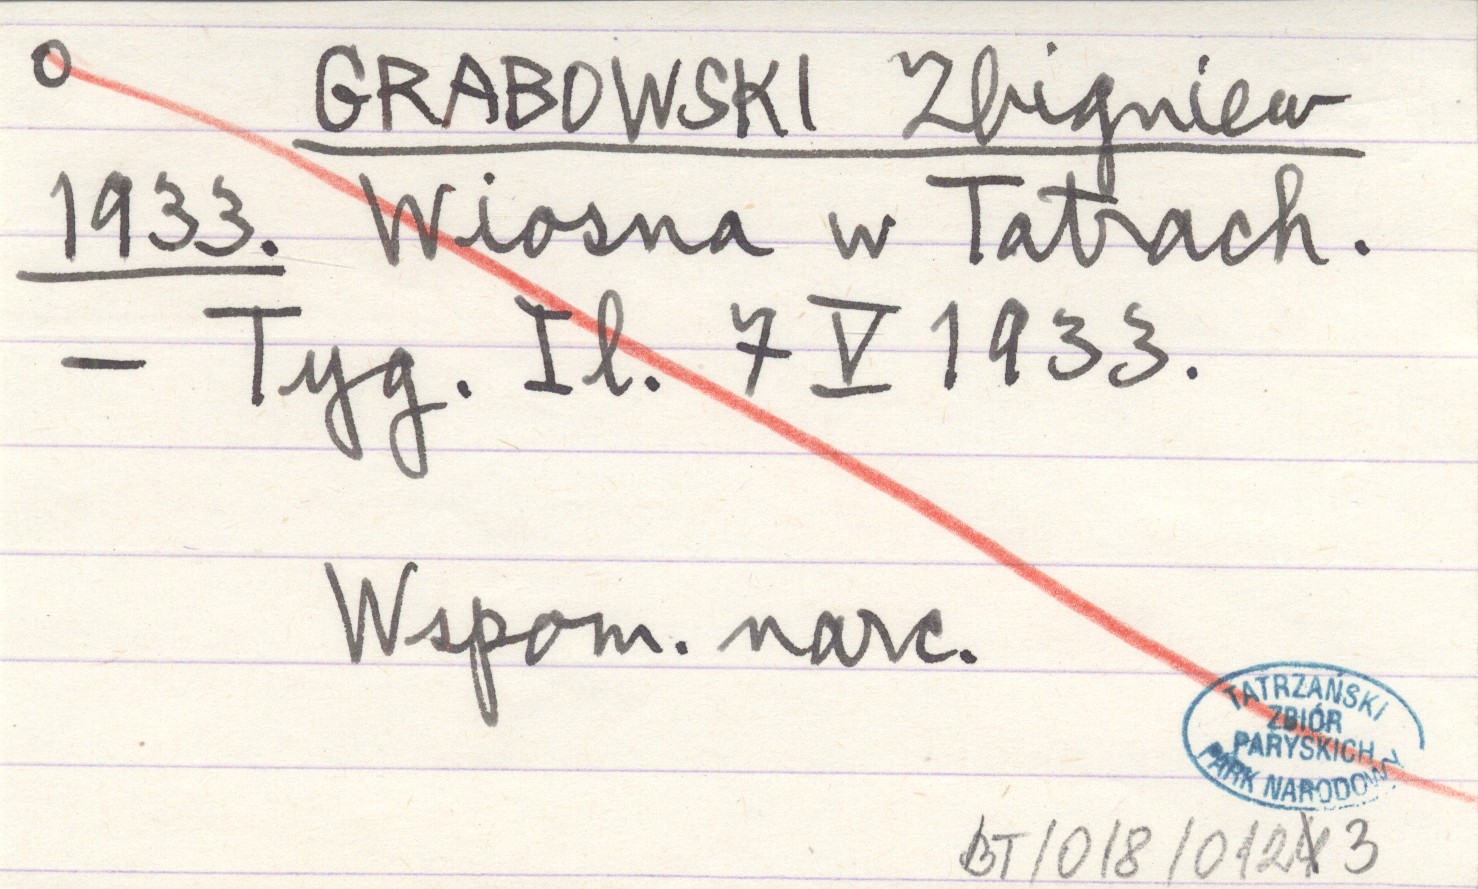 o GRABOWSKI Zbigniew
1933. Wiosna w Tatrach.
— Tyg. Il. 7 V 1933.
Wspom. narc.
TATRZAŃSKI
ZBIÓR
PARYSKICH
PARK NARODOWY
BT/018/0123